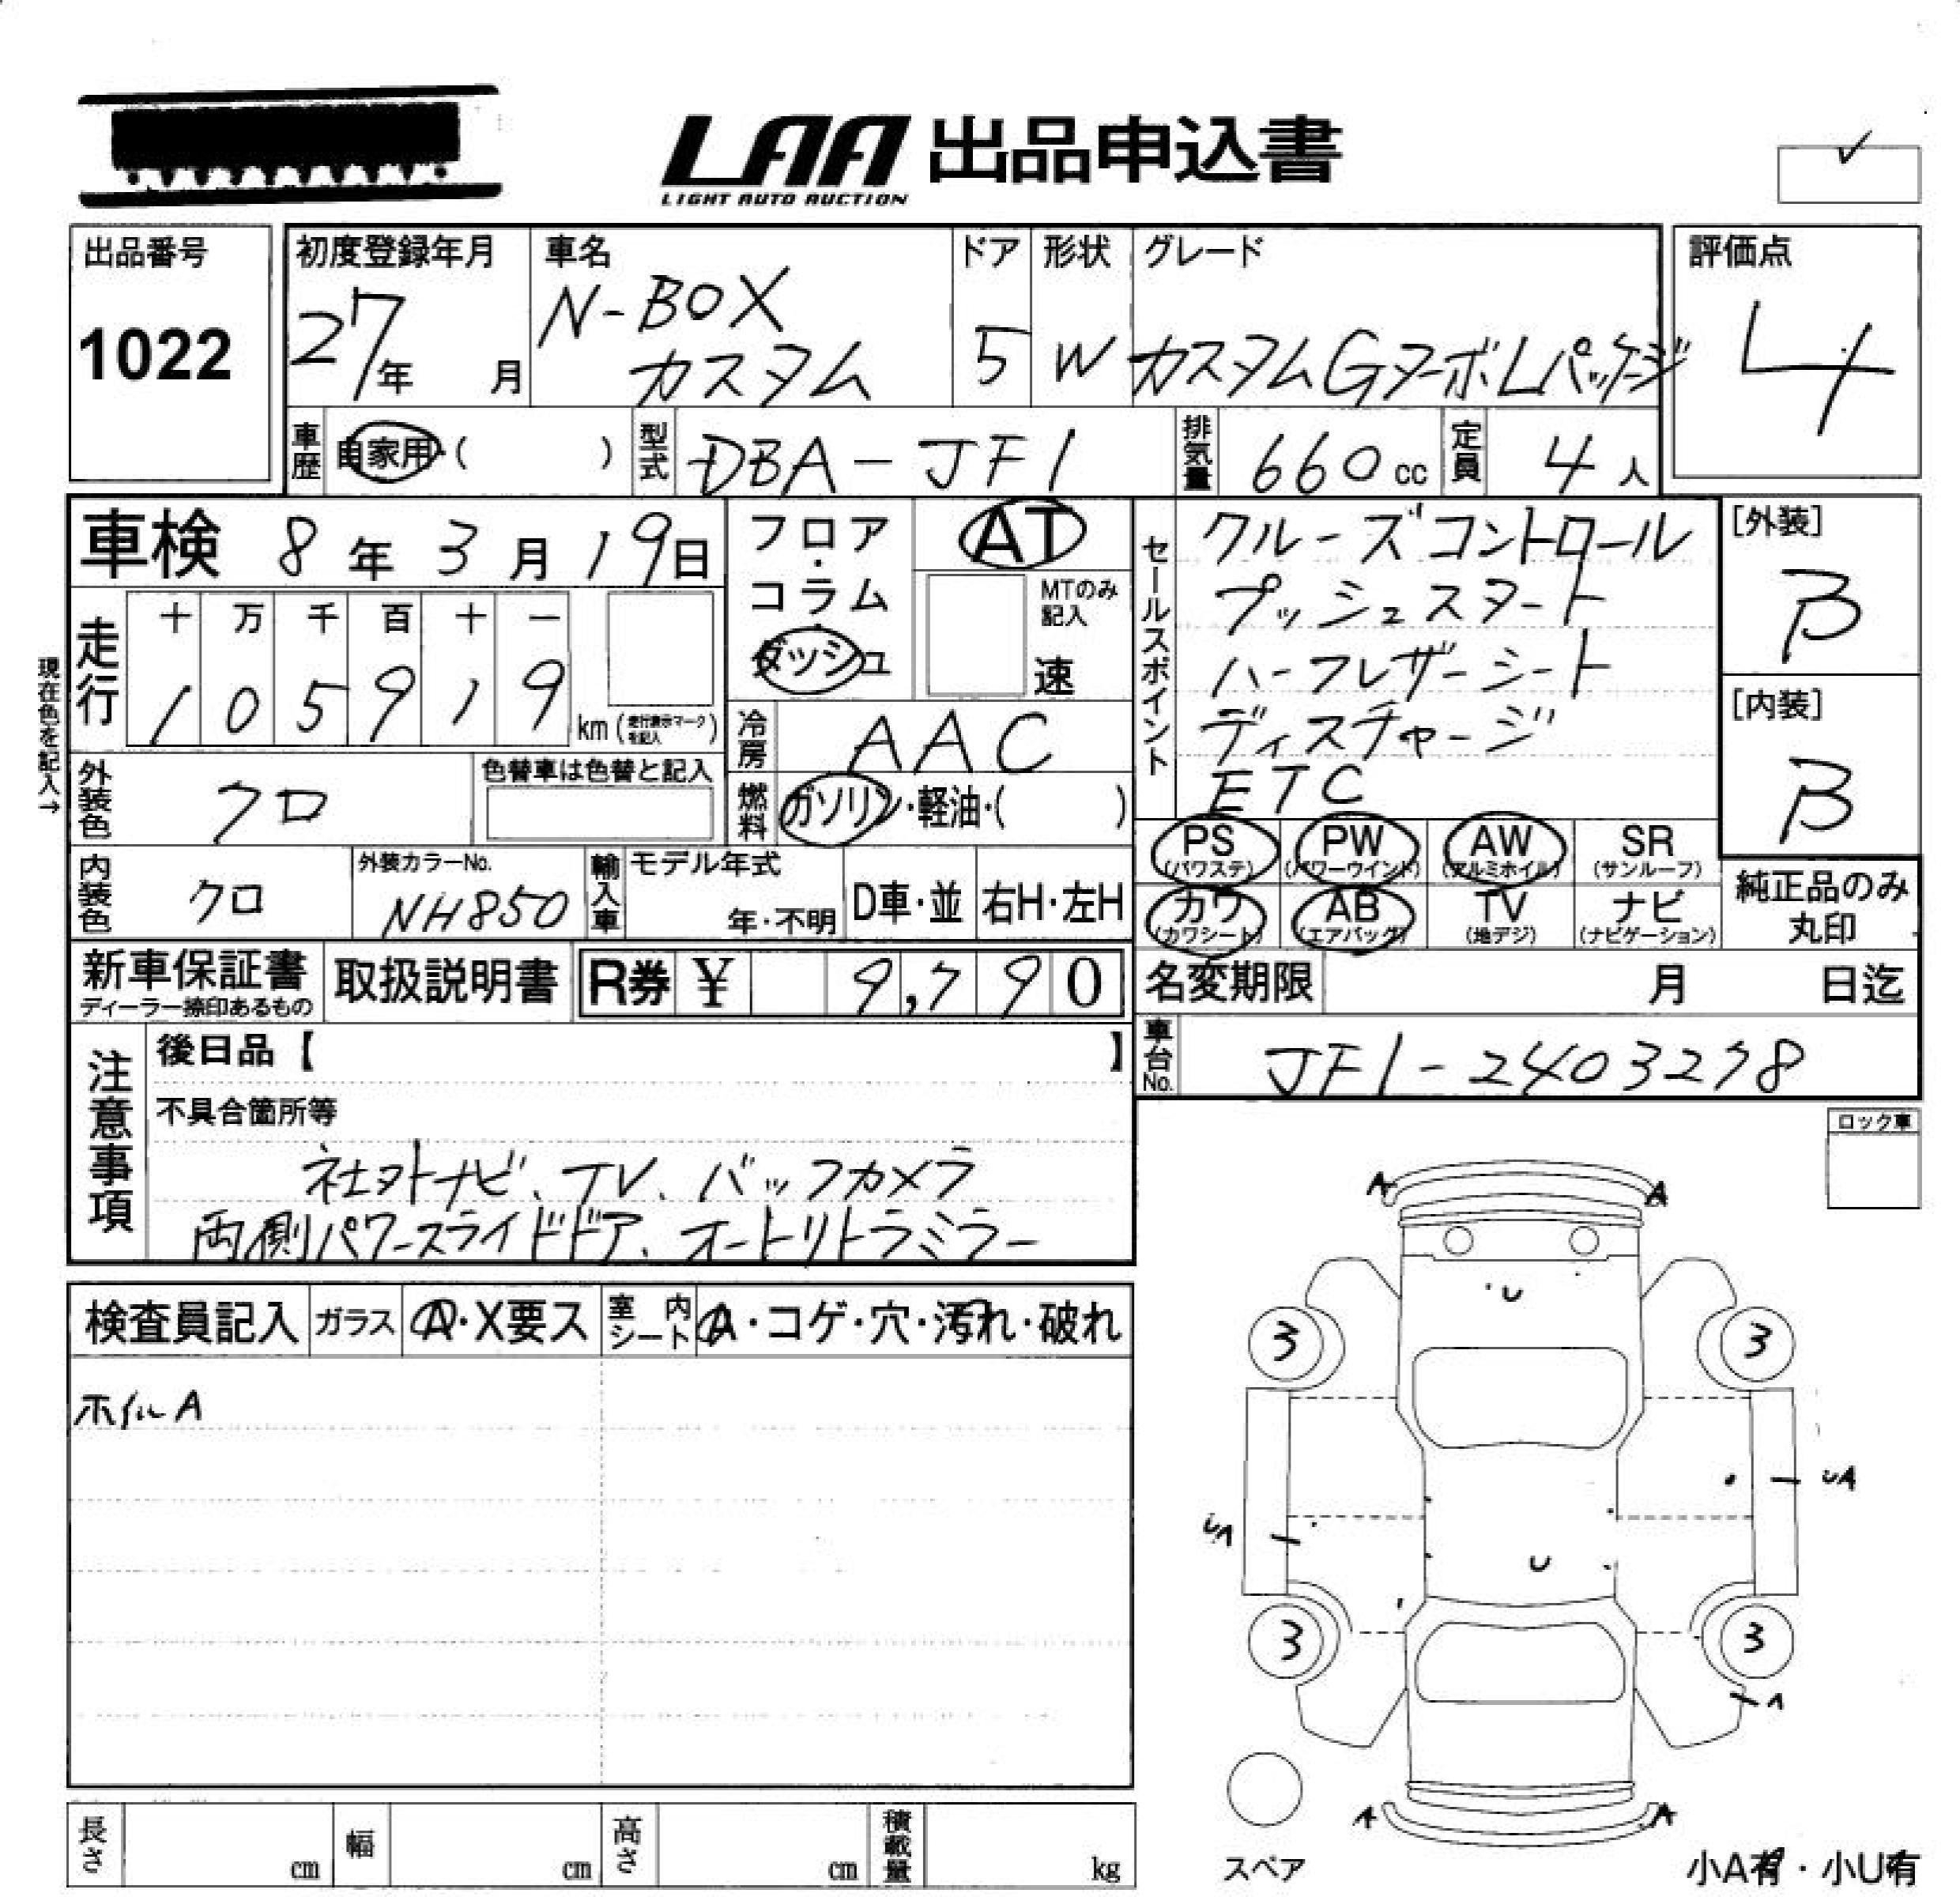 LAA 出品申込書
LIGHT AUTO AUCTION
出品番号
1022
初度登録年月
27年 月
車名
N-BOX
カスタム
ドア
5
形状
W
グレード
カスタムGターボLパッケージ
評価点
4
車歴 自家用・( )
型式 DBA-JF1
排気量 660cc
定員 4人
車検 8年3月19日
フロア・コラム・ダッシュ
AT
MTのみ記入
速
走行
十 万 千 百 十 一
1 0 5 9 1 9
km (走行表示マークを記入)
現在色を記入→
冷房 AAC
燃料 ガソリン・軽油・( )
外装色 クロ
色替車は色替と記入
内装色 クロ
外装カラーNo.
NH850
輸入車
モデル年式
年・不明
D車・並
右H・左H
セールスポイント
クルーズコントロール
プッシュスタート
ハーフレザーシート
ディスチャージ
ETC
[外装]
B
[内装]
B
PS (パワステ)
PW (パワーウインド)
AW (アルミホイル)
SR (サンルーフ)
カワ (カワシート)
AB (エアバッグ)
TV (地デジ)
ナビ (ナビゲーション)
純正品のみ
丸印
新車保証書
ディーラー捺印あるもの
取扱説明書
R券 ¥ 9,790
名変期限 月 日迄
車台No. JF1-2403278
注意事項
後日品【 】
不具合箇所等
社外ナビ、TV、バックカメラ
両側パワースライドドア、オートリトラミラー
ロック車
検査員記入
ガラス A・X要ス
室内シート A・コゲ・穴・汚れ・破れ
ホイルA
A A
U
3 3
UA
UA
U
3 3
A
A A
スペア
小A有・小U有
長さ cm
幅 cm
高さ cm
積載量 kg